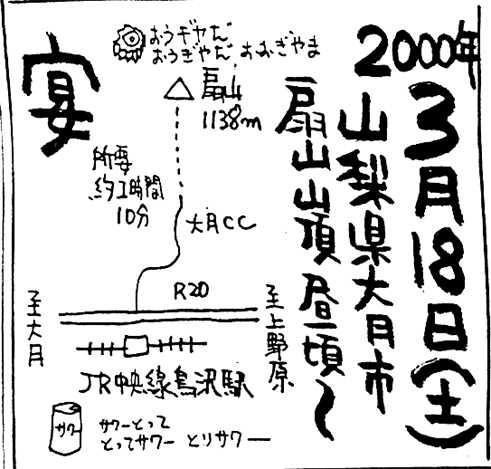 2000年
3月18日(土)
山梨県大月市
扇山山頂 昼頃〜
宴
おうギヤだ
おうぎやだ おおぎやま
扇山
1138m
所要
約1時間
10分
大月CC
R20
至大月
至上野原
JR中央線鳥沢駅
サワー
サワーとって
とってサワー とりサワー